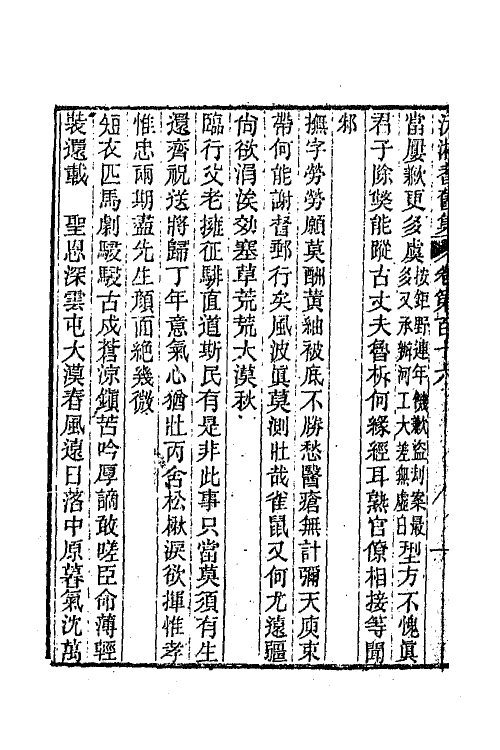 沅湘耆舊集 卷第百十六
當屢歉更多虞 按鉅野連年饑歉盜刦案最多又承辦河工大差無虛日 型方不愧眞
君子除獘能蹤古丈夫魯柝何緣經耳熟官僚相接等聞
邾
撫字勞勞願莫酬黃紬被底不勝愁醫瘡無計彌天庾束
帶何能謝督郵行矣風波眞莫測壯哉雀鼠又何尤遠疆
尙欲涓埃効塞草荒荒大漠秋
臨行父老擁征騑直道斯民有是非此事只當莫須有生
還齊祝送將歸丁年意氣心猶壯丙舍松楸淚欲揮惟孝
惟忠兩期盡先生顏面絕幾微
短衣匹馬劇駸駸古戍蒼涼鎭苦吟厚謫敢嗟臣命薄輕
裝還載 聖恩深雲屯大漠春風遠日落中原暮氣沈萬